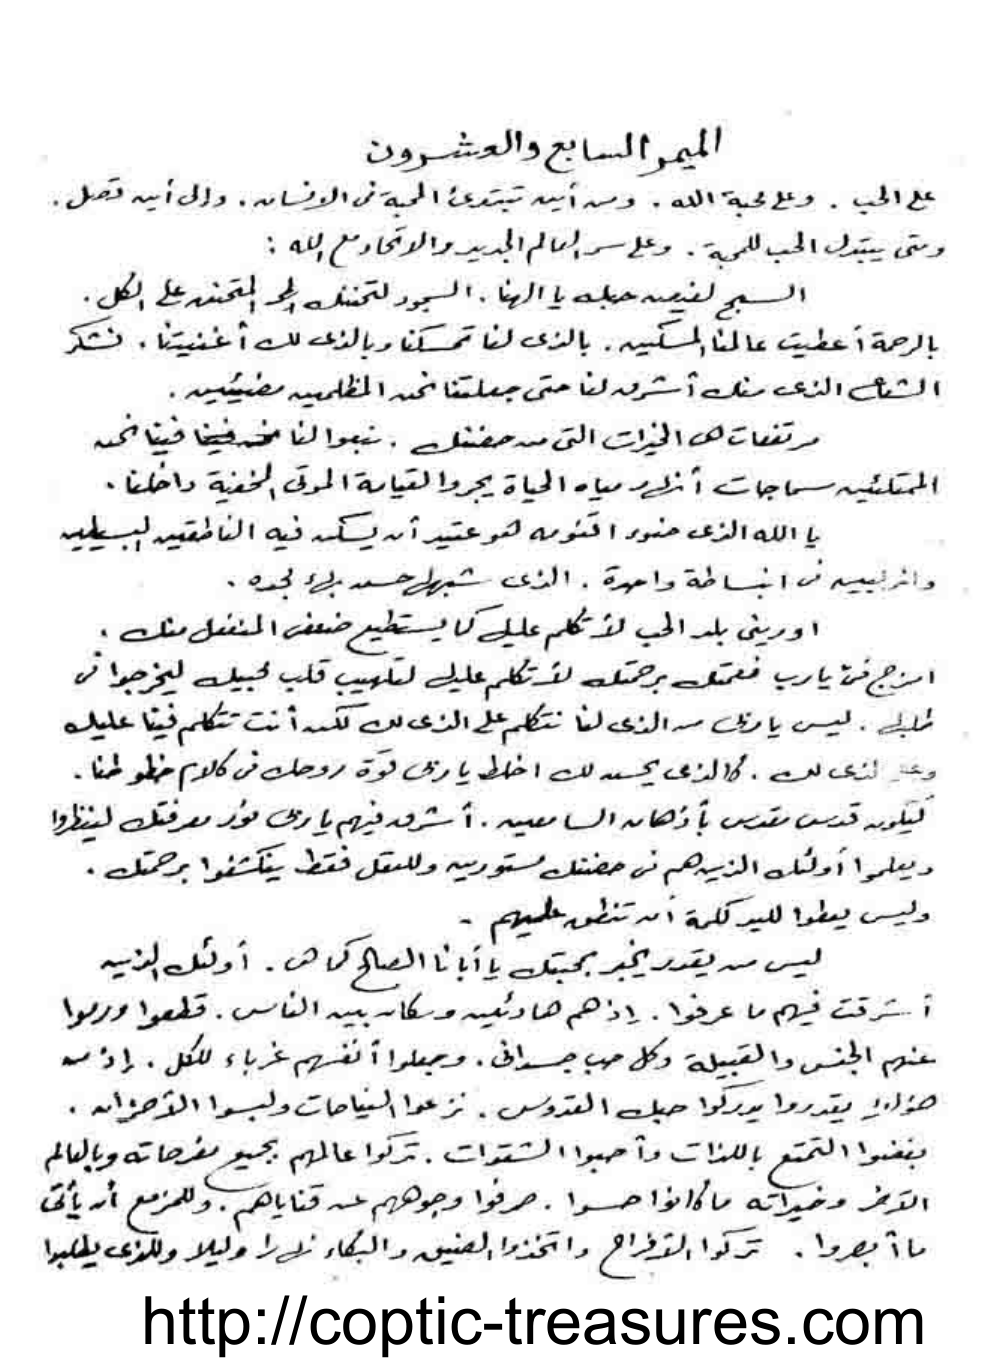 الميمر السابع والعشرون
على الحب . وعلى محبة الله . ومن أين تبتدئ المحبة فى الانسان . وإلى أين تصل .
ومتى يبتدل الحب للمحبة . وعلى سر العالم الجديد والاتحاد مع الله :
السبح لفيض حبك يا الهنا . السجود لتحننك الحر المتحنن على الكل .
بالرحمة أعطيت عالمنا المسكين . بالذى لنا تمسكنا وبالذى لك أغنيتنا . نشكر
الشعاع الذى منك أشرق لنا حتى جعلتنا نحن المظلمين مضيئين .
مرتفعات هى الخيرات التى من حضنك . نبعوا لنا فينا نحن
الممتلئين سماجات أنهار مياه الحياة يجروا لقيامة الموتى المخفية داخلنا .
يا الله الذى ضوء اقنومه هو عتيد أن يسكن فيه الناطقين البسيطين
فى انبساطة واحدة . الذى شبهك حسن بهاء لمجده .
اورينى بلد الحب لأتكلم عليك كما يستطيع ضعفى المنفعل منك .
امزج فىّ يارب نعمتك برحمتك لأتكلم عليك لتلهيب قلب محبيك ليخرجوا فى
طلبك . ليس يا ربى من الذى لنا نتكلم على الذى لك لكن أنت تتكلم فينا عليك
وعلى الذى لك . كالذى يحسن لك اخلط يا ربى قوة روحك فى كلام خطوطنا .
ليكون قدس مقدس بأذهان السامعين . أشرق فيهم يا ربى نور معرفتك لينظروا
ويعلموا أولئك الذين هم فى حضنك مستورين وللعقل فقط ينكشفوا برحمتك .
وليس يعطوا لليد كلمة أن تنطق عليهم .
ليس من يقدر يخبر بمحبتك يا أبانا الصالح كما هى . أولئك الذين
أشرقت فيهم ما عرفوا . إذ هم هادئين وسكان بين الناس . قطعوا ورموا
عنهم الجنس والقبيلة وكل حب جسدانى . وجعلوا أنفسهم غرباء للكل . إذ من
هؤلاء يقدروا يدركوا حبك القدوس . نزعوا النياحات ولبسوا الأحزان .
بغضوا التمتع باللذات وأحبوا الشقوات . تركوا عالمهم بجميع مفرحاته وبالعالم
الآخر وخيراته ما كانوا حسوا . صرفوا وجوههم عن قناياهم . وللمزمع أن يأتى
ما أبصروا . تركوا الأفراح واتخذوا الضيق والبكاء نهارا وليلا وللذى يطلبوا
http://coptic-treasures.com